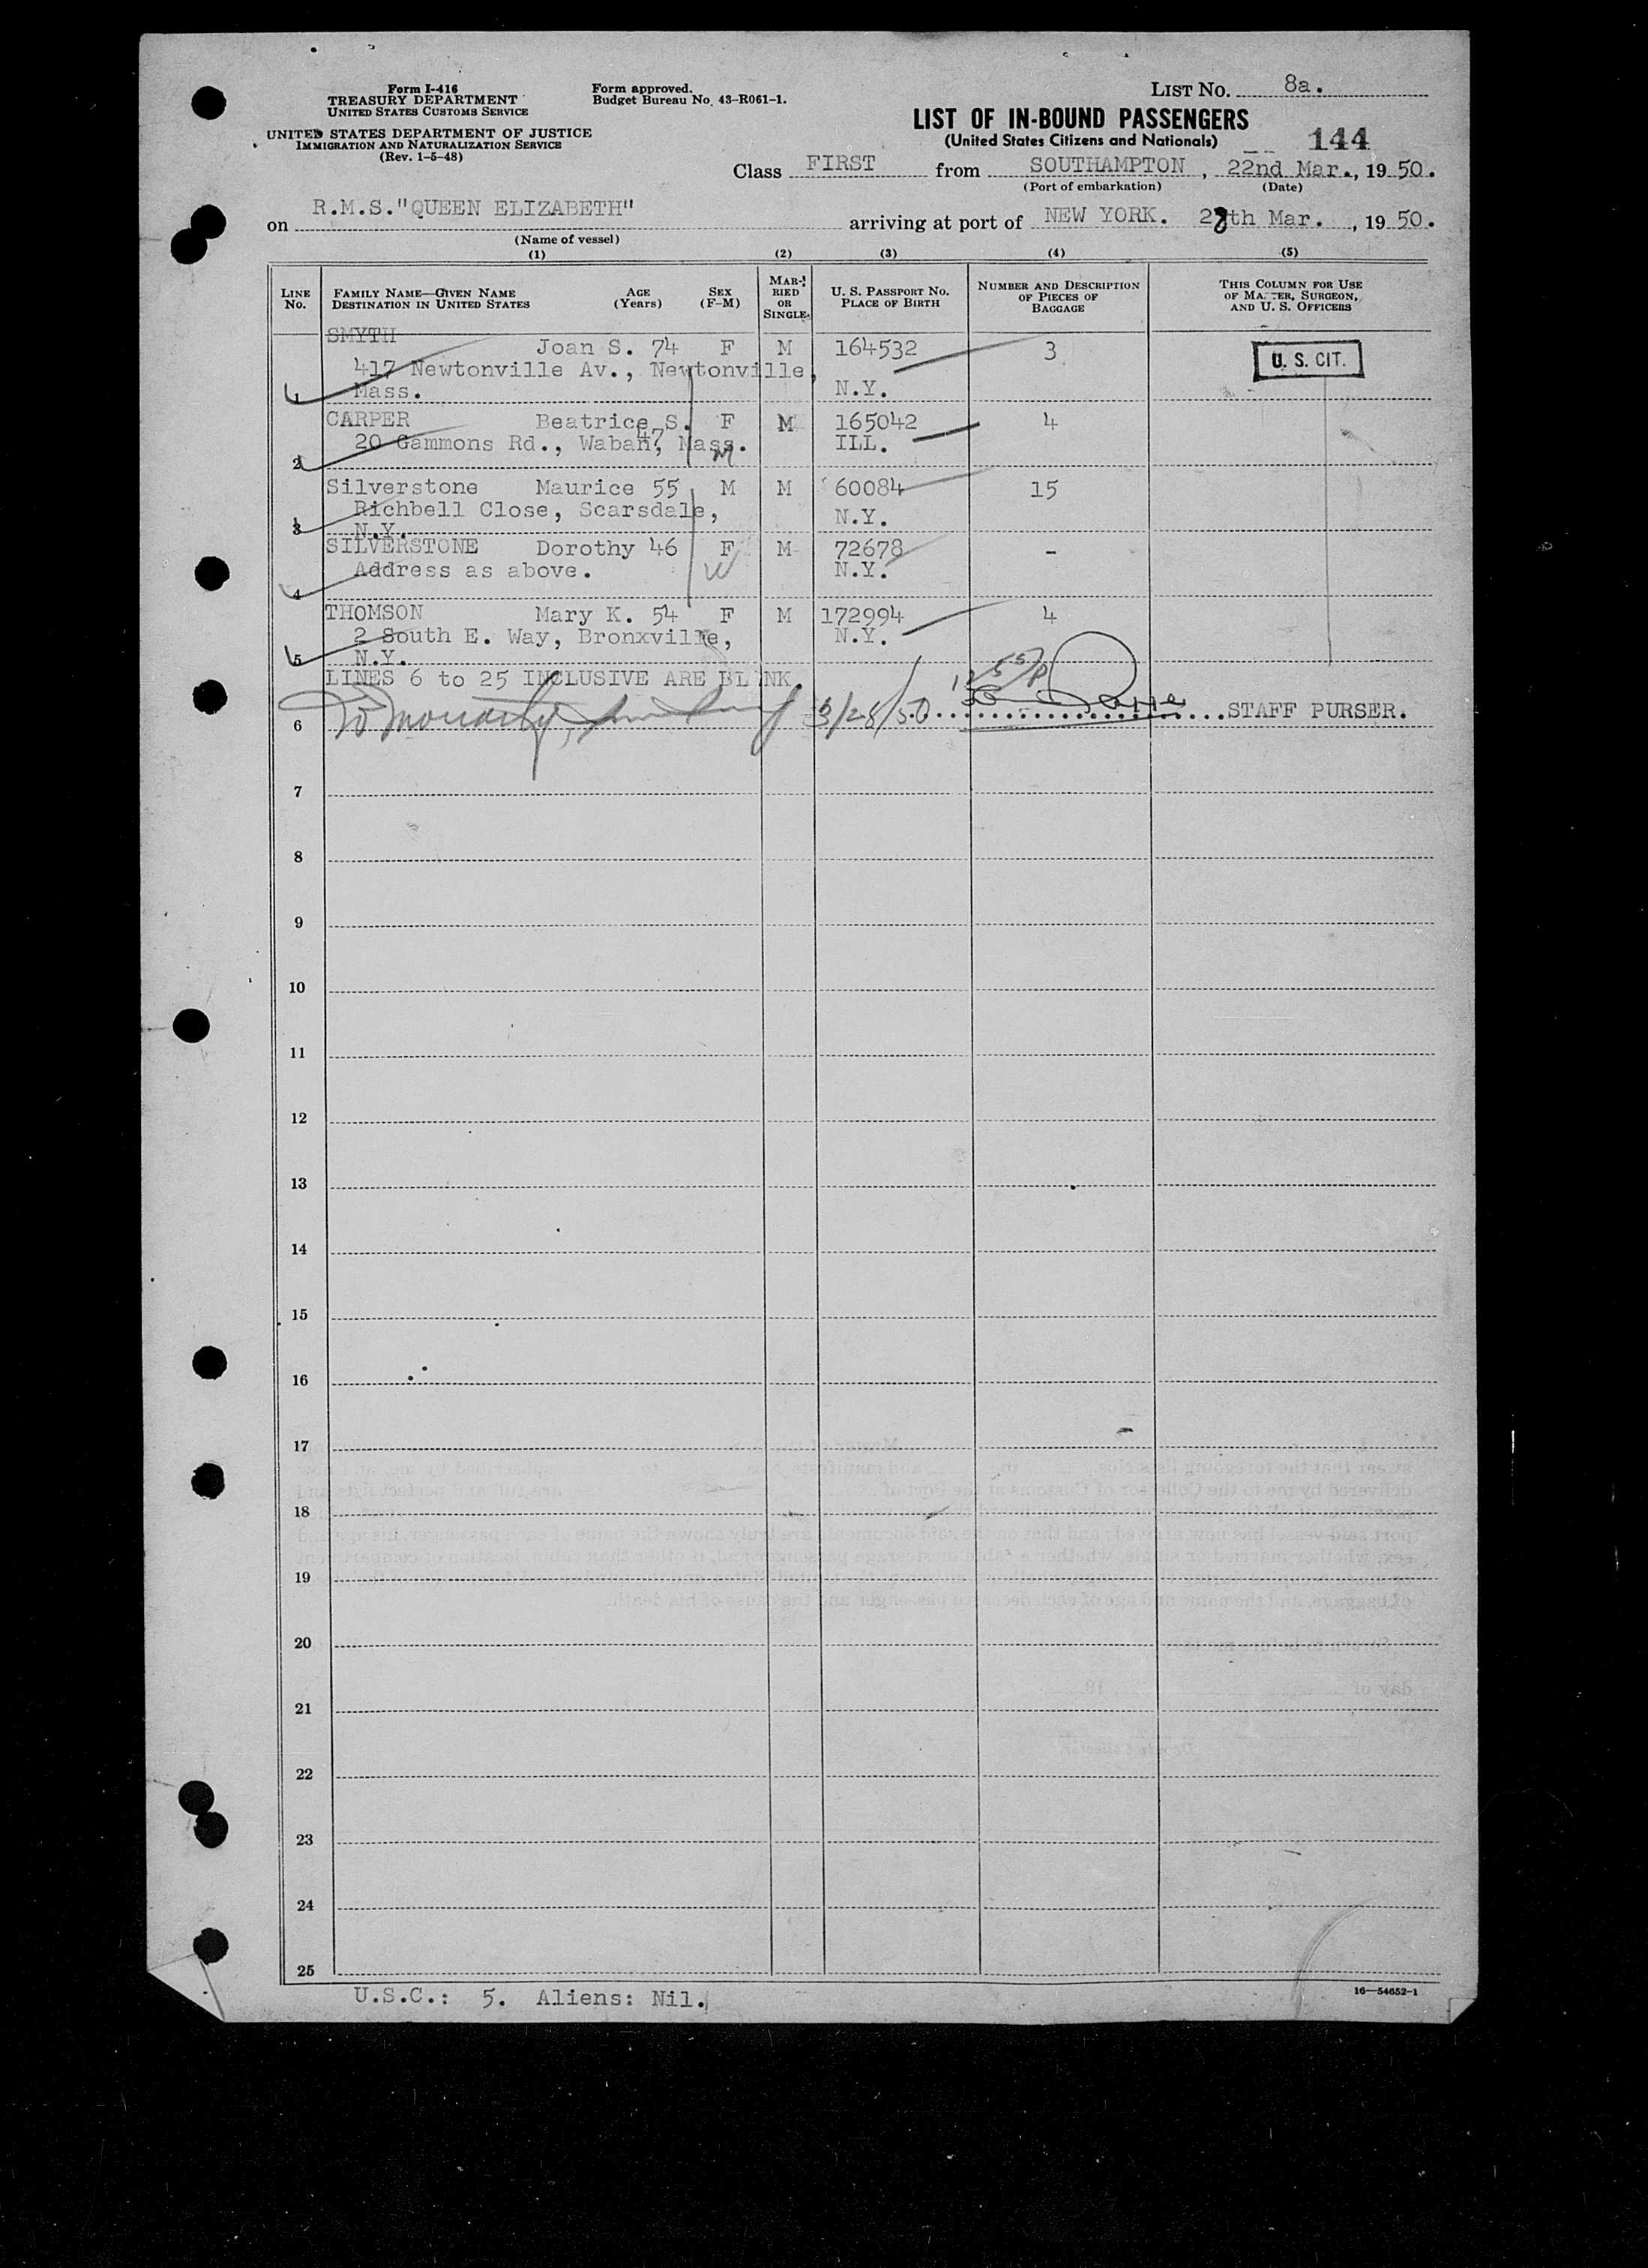 Form I-416
TREASURY DEPARTMENT
UNITED STATES CUSTOMS SERVICE
UNITED STATES DEPARTMENT OF JUSTICE
IMMIGRATION AND NATURALIZATION SERVICE
(Rev. 1-5-48)
Form approved.
Budget Bureau No. 43-R061-1.
LIST No. 8a.
LIST OF IN-BOUND PASSENGERS
(United States Citizens and Nationals)
144
Class FIRST from SOUTHAMPTON, 22nd Mar., 1950.
(Port of embarkation) (Date)
on R.M.S."QUEEN ELIZABETH" arriving at port of NEW YORK. 28th Mar. , 1950.
(Name of vessel)
(1) (2) (3) (4) (5)
LINE No. FAMILY NAME—GIVEN NAME DESTINATION IN UNITED STATES AGE (Years) SEX (F-M) MARRIED OR SINGLE U. S. PASSPORT No. PLACE OF BIRTH NUMBER AND DESCRIPTION OF PIECES OF BAGGAGE THIS COLUMN FOR USE OF MASTER, SURGEON, AND U. S. OFFICERS
SMYTH
Joan S. 74 F M 164532 3 U. S. CIT.
417 Newtonville Av., Newtonville,
1 Mass. N.Y.
CARPER Beatrice S. F M 165042 4
47
20 Gammons Rd., Waban, Mass. ILL.
2
Silverstone Maurice 55 M M 60084 15
Richbell Close, Scarsdale, N.Y.
3 N.Y.
SILVERSTONE Dorothy 46 F M 72678 -
Address as above. W N.Y.
4
THOMSON Mary K. 54 F M 172994 4
2 South E. Way, Bronxville, N.Y.
5 N.Y.
LINES 6 to 25 INCLUSIVE ARE BLANK.
6 3/28/50 STAFF PURSER.
7
8
9
10
11
12
13
14
15
16
17
18
19
20
21
22
23
24
25
U.S.C.: 5. Aliens: Nil.
16—54652-1